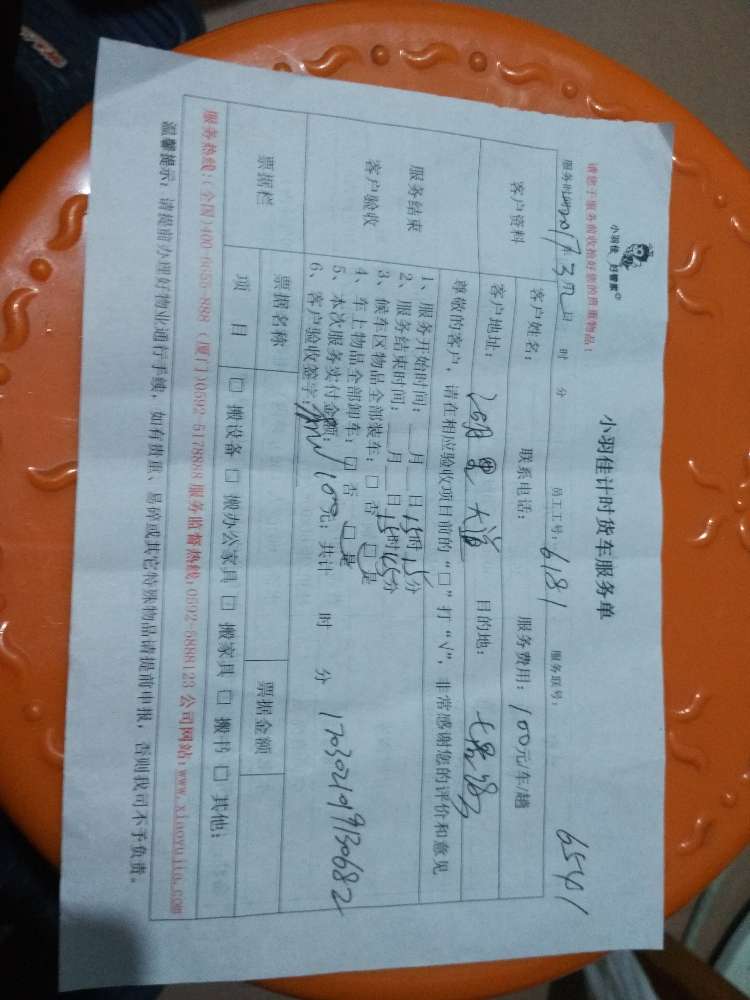 小羽佳 好管家
请您于服务前收拾好您的贵重物品！
小羽佳计时货车服务单
6541
服务时间：2017年3月2日 时 分 员工工号：6181 服务联号：
客户资料 客户姓名： 联系电话： 服务费用：100元/车/趟
客户地址： 大道 目的地：
尊敬的客户，请在相应验收项目前的“□”打“√”，非常感谢您的评价和意见
服务结束
客户验收
1、服务开始时间： 月 日15时15分
2、服务结束时间： 月 日15时45分
3、候车区物品全部装车：□ 否 □ 是
4、车上物品全部卸车：□ 否 □ 是
5、本次服务实付金额：100元；共计 时 分
6、客户验收签字：
170302199130682
票据栏 票据名称 票据金额
项 目 □ 搬设备 □ 搬办公家具 □ 搬家具 □ 搬书 □ 其他：
服务热线：(全国)400-6655-888 (厦门)0592-5178888 服务监督热线：0592-5888123 公司网站：www.xiaoyujia.com
温馨提示：请提前办理好物业通行手续，如有贵重、易碎或其它特殊物品请提前申报，否则我司不予负责。